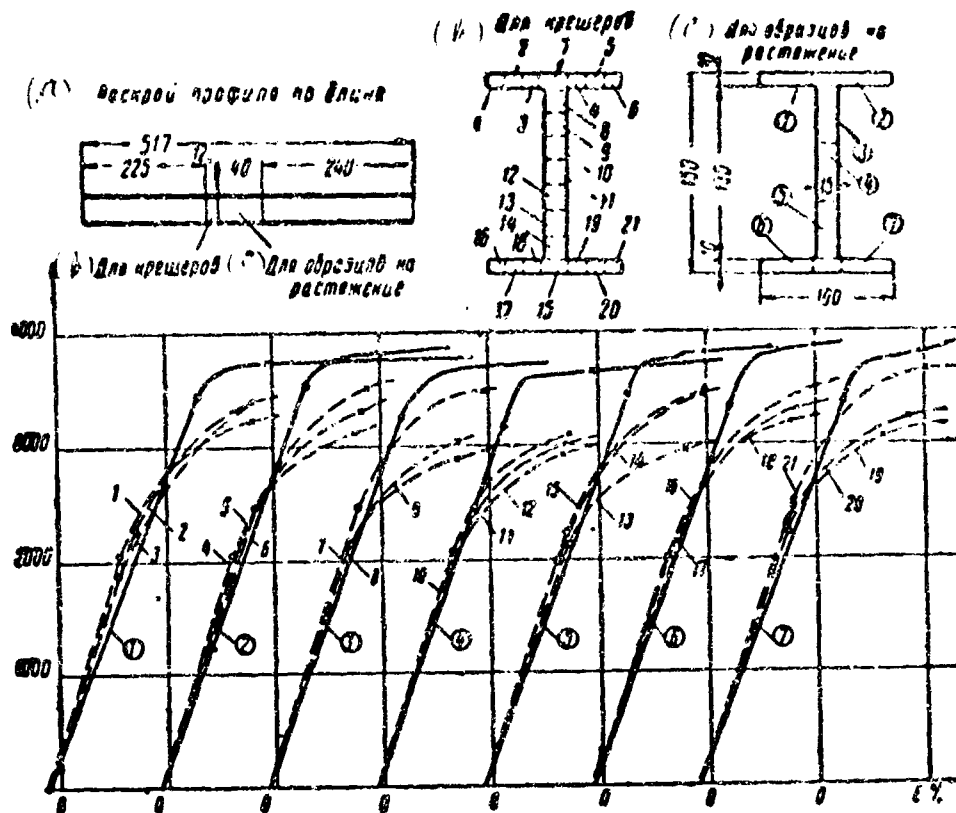 (а) Раскрой профиля по длине
517
225 12 40 240
(в) Для крешеров (с) Для образцов на
растяжение
(в) Для крешеров
2 7 5
1 3 4 6
8
9
10
12 11
13
14
16 18 19 21
17 15 20
(с) Для образцов на
растяжение
10
① ②
③
150 130 13 ④
⑤
10 ⑥ ⑦
100
4000
3000
2000
1000
1 2 3 ①
5 4 6 ②
7 8 9 ③
10 11 12 ④
15 14 13 ⑤
16 17 18 ⑥
21 20 19 ⑦
0 0 0 0 0 0 0 0 ε %